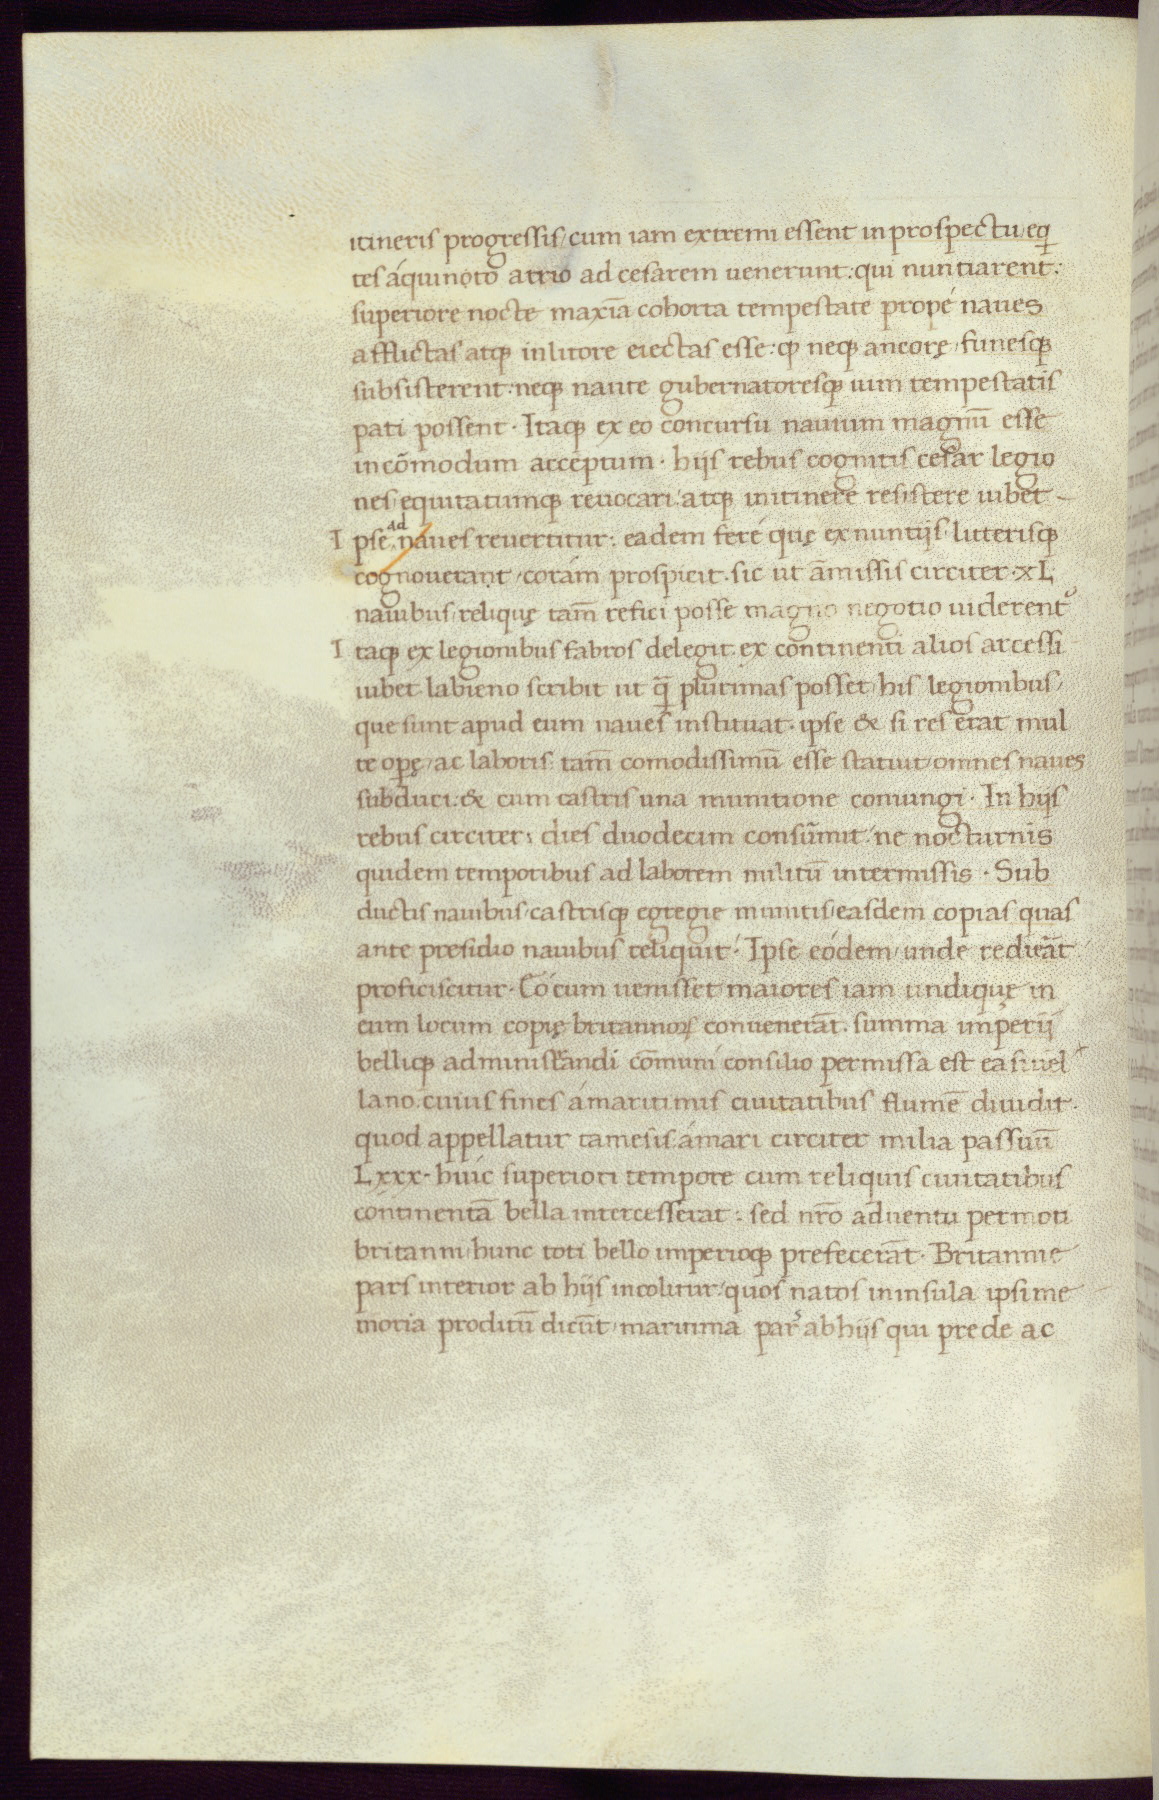 itineris progressis / cum iam extremi essent in prospectu / eq̇
tes áquinọto atrio ad cesarem uenerunt : qui nuntiarent :
superiore nocte maxīa cohorta tempestate propé naues
afflictas atqꝫ in litore eiectas esse : ꝙ neqꝫ ancorę / funesqꝫ
subsisterent : neqꝫ naute gubernatoresqꝫ uim tempestatis
pati possent · Itaqꝫ ex eo concursu nauium magnū esse
incōmodum acceptum · hijs rebus cognitis cesar legio
nes / equitatumqꝫ reuocari / atqꝫ initinere resistere iubet
Ipse ad naues reuertitur : eadem feré quę ex nuntijs litterisqꝫ
cognouerant / corám prospicit . sic ut āmissis circiter · XL
nauibus / reliquę tam̄ refici posse magno negotio uiderent᷒
Itaqꝫ ex legionibus fabros delegit . ex continenti alios arcessi
iubet . labieno scribit ut q̄ȝ plurimas posset / his legionibus /
que sunt apud eum naues instituat . ipse & si res erat mul
te opę / ac laboris tam̄ comodissimū esse statuit / omnes naues
subduci : & cum castris una munitione coniungi · In hijs
rebus circiter : dies duodecim consūmit / ne nocturnis
quidem temporibus ad laborem militū intermissis · Sub
ductis nauibus / castrisqꝫ egregie munitis / easdem copias quas
ante presidio nauibus reliquit · Ipse eódem / unde redierāt
proficiscitur · Có cum uenisset maiores iam undiquę in
eum locum copię britannoꝝ conuenerāt . summa imperij
belliqꝫ administrandi cōmuni consilio permissa est casiuel
lano . cuius fines ámaritimis ciuitatibus flumē diuidit .
quod appellatur tamesis . ámari circiter milia passuū
LXXX · huic superiori tempore cum reliquis ciuitatibus
continentā bella intercesserat : sed nr̄o aduentu permoti
britanni / hunc toti bello imperioqꝫ prefecerāt · Britannie
pars interior ab hijs incolitur / quos natos in insula ipsi me
moria proditū dicūt / maritima par᷒ ab hijs qui prede ac